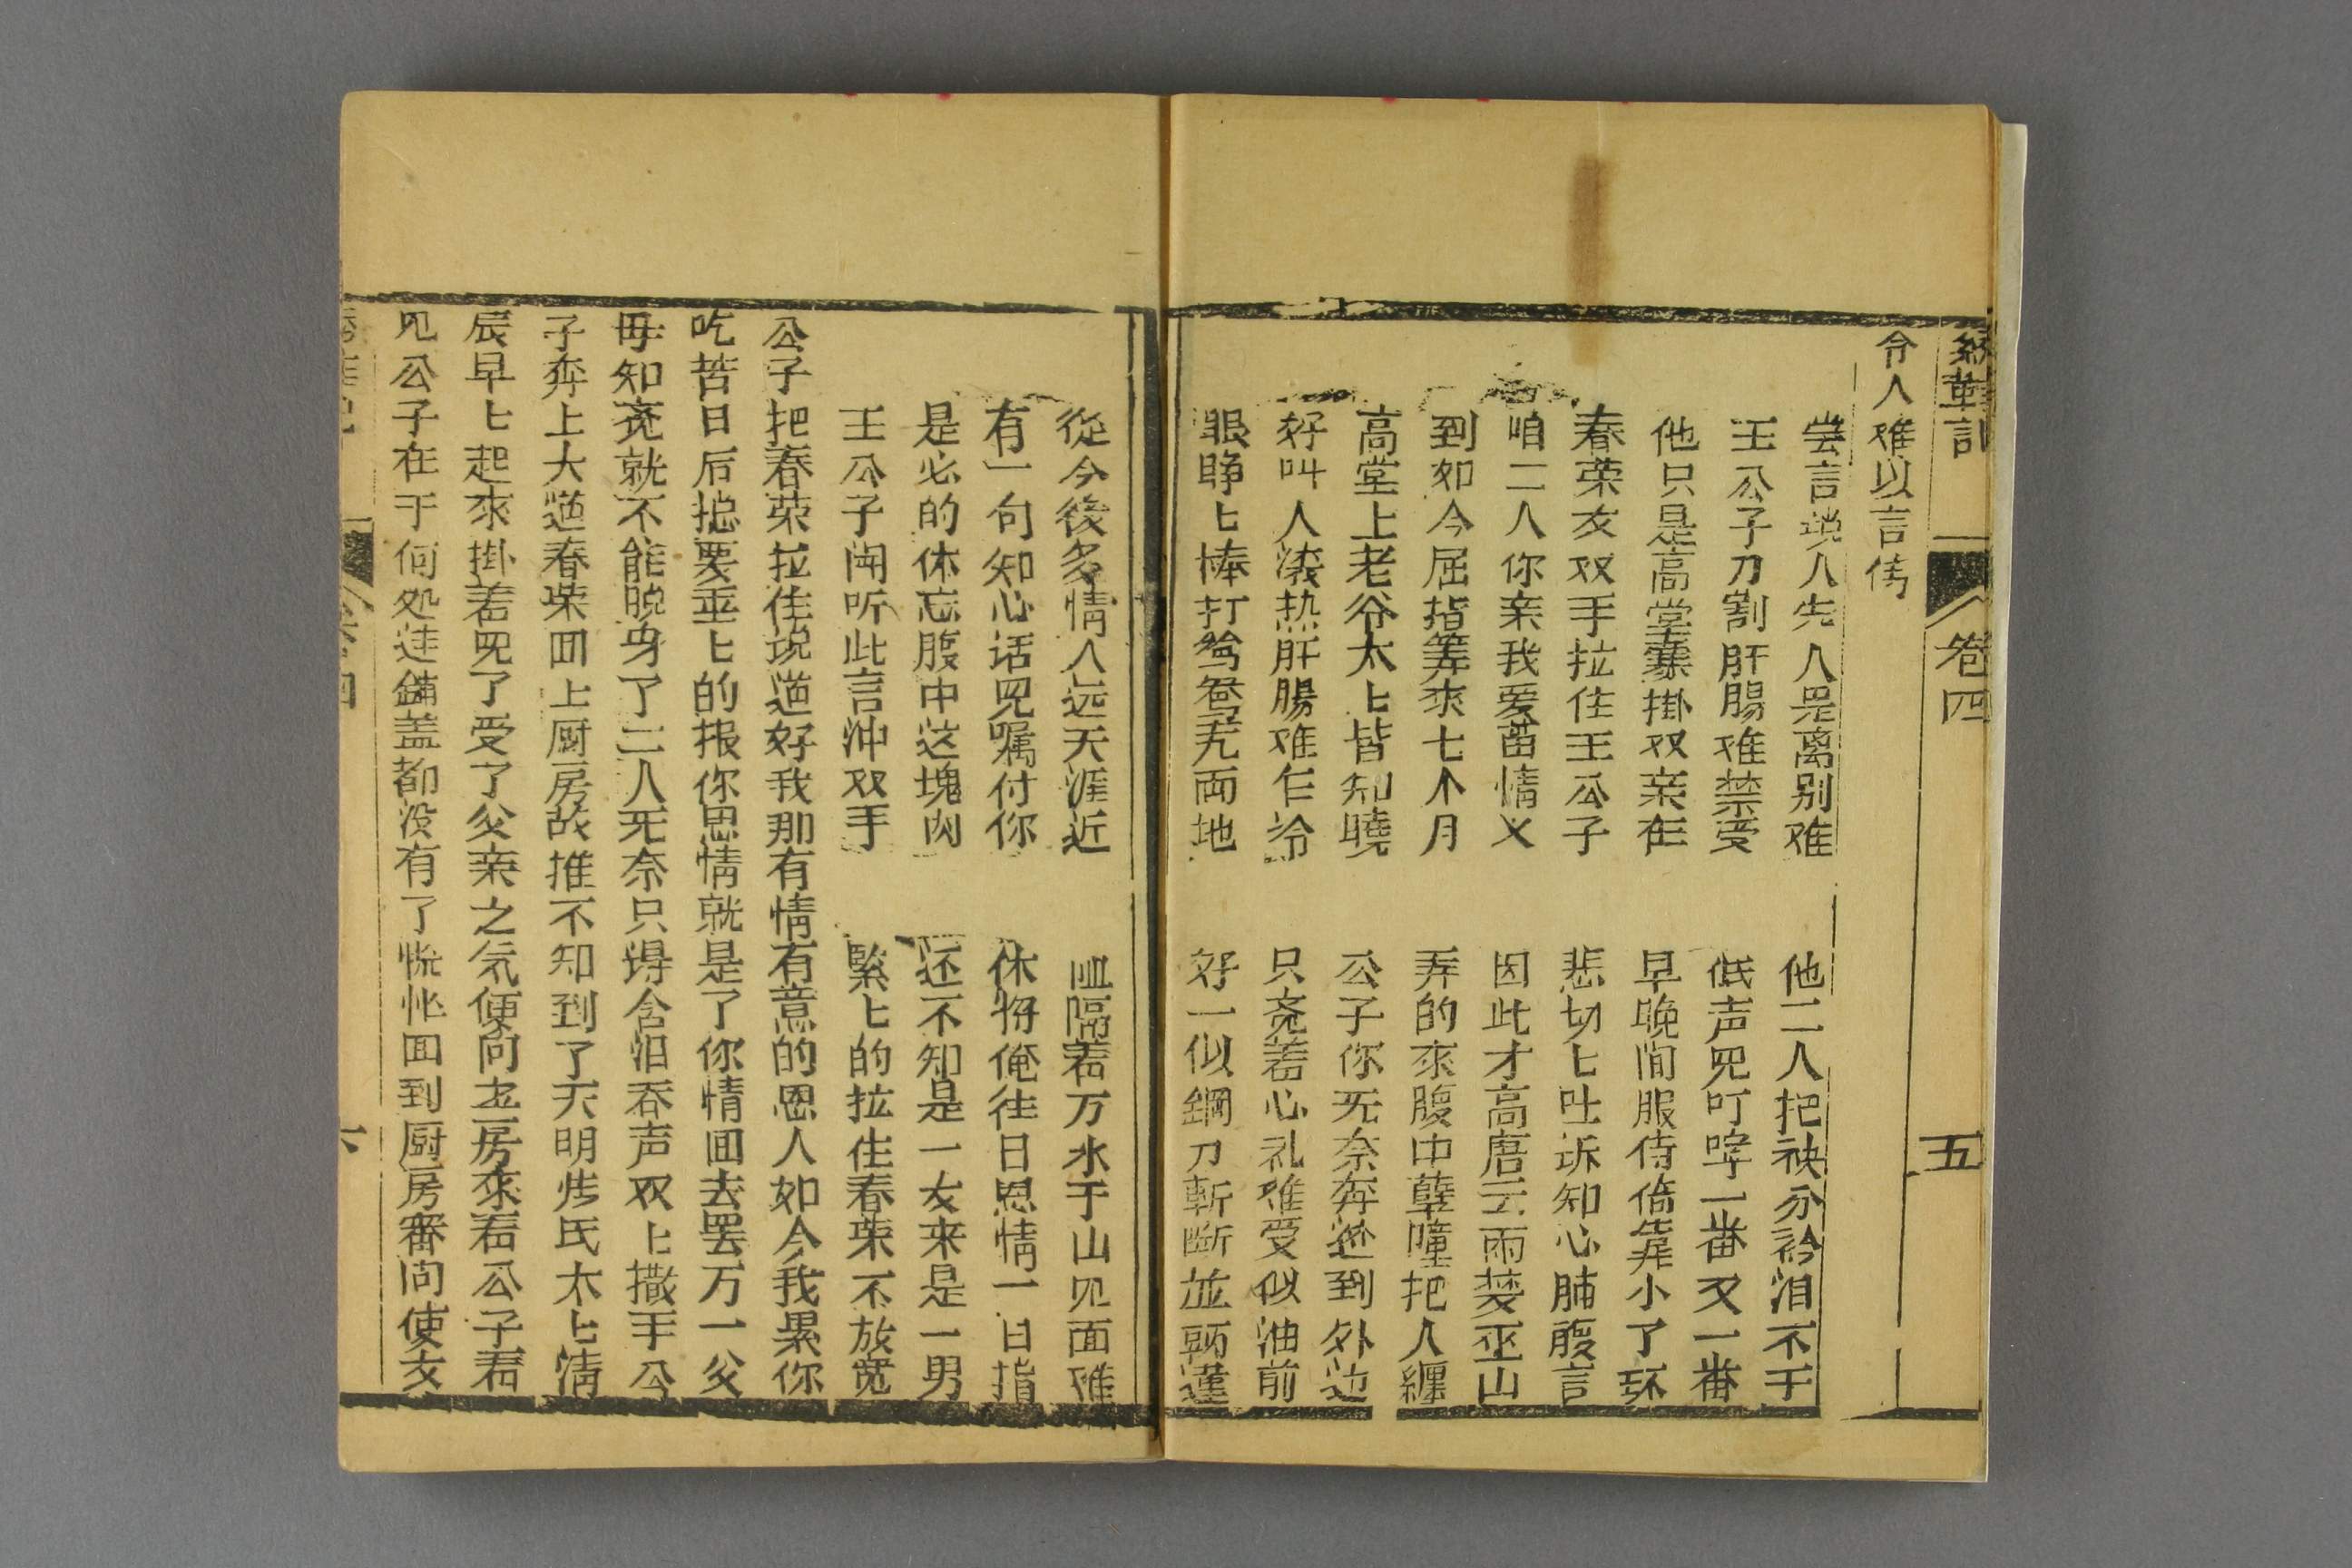 卷四
五
令人难以言传
尝言说人先人是离别难 他二人把袂分衿泪不干
王公子刀割肝腸难禁受 低声児叮咛一番又一番
他只是高堂寡掛双亲在 早晚间服侍偹靠小了环
春荣女双手拉住王公子 悲切匕吐诉知心肺腹言
咱二人你亲我爱苗情义 因此才高唐云雨梦巫山
到如今屈指筭來七个月 弄的來腹中孽瞳把人纏
高堂上老爷太匕皆知曉 公子你无奈奔逃到外边
好叫人滚热肝腸难乍冷 只亮着心礼难受似油前
眼睁匕棒打鸳鸯无両地 好一似鋼刀斬断並蒂蓮
從今後多情人远天涯近 隔着万水千山见面难
有一句知心话児嘱付你 休將俺往日恩情一日指
是必的休忘腹中这塊肉 还不知是一女来是一男
王公子闻听此言冲双手 緊匕的拉住春荣不放宽
公子把春荣拉住说道好我那有情有意的恩人如今我累你
吃苦日后搃要重匕的报你恩情就是了你情回去罢万一父
母知亮就不能脱身了二人无奈只得含泪吞声双上撒手公
子奔上大道春荣回上厨房故推不知到了天明背氏太匕清
辰早匕起來掛着児了受了父亲之気便向书房來看公子看
见公子在于何处連鋪盖都没有了慌忙回到厨房審问使女
卷四
六